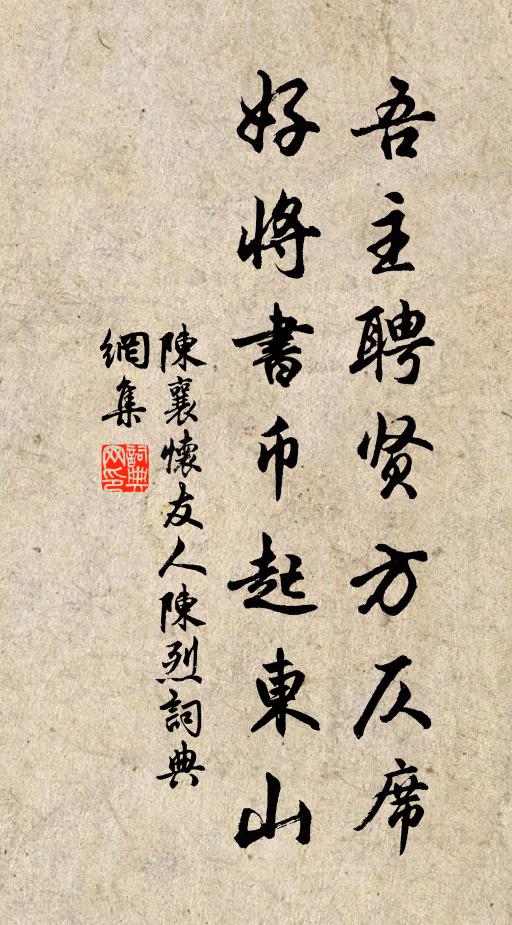 吾主聘贤方仄席
好将書币起東山
陳襄懷友人陳烈詞典
網集
詞典網印